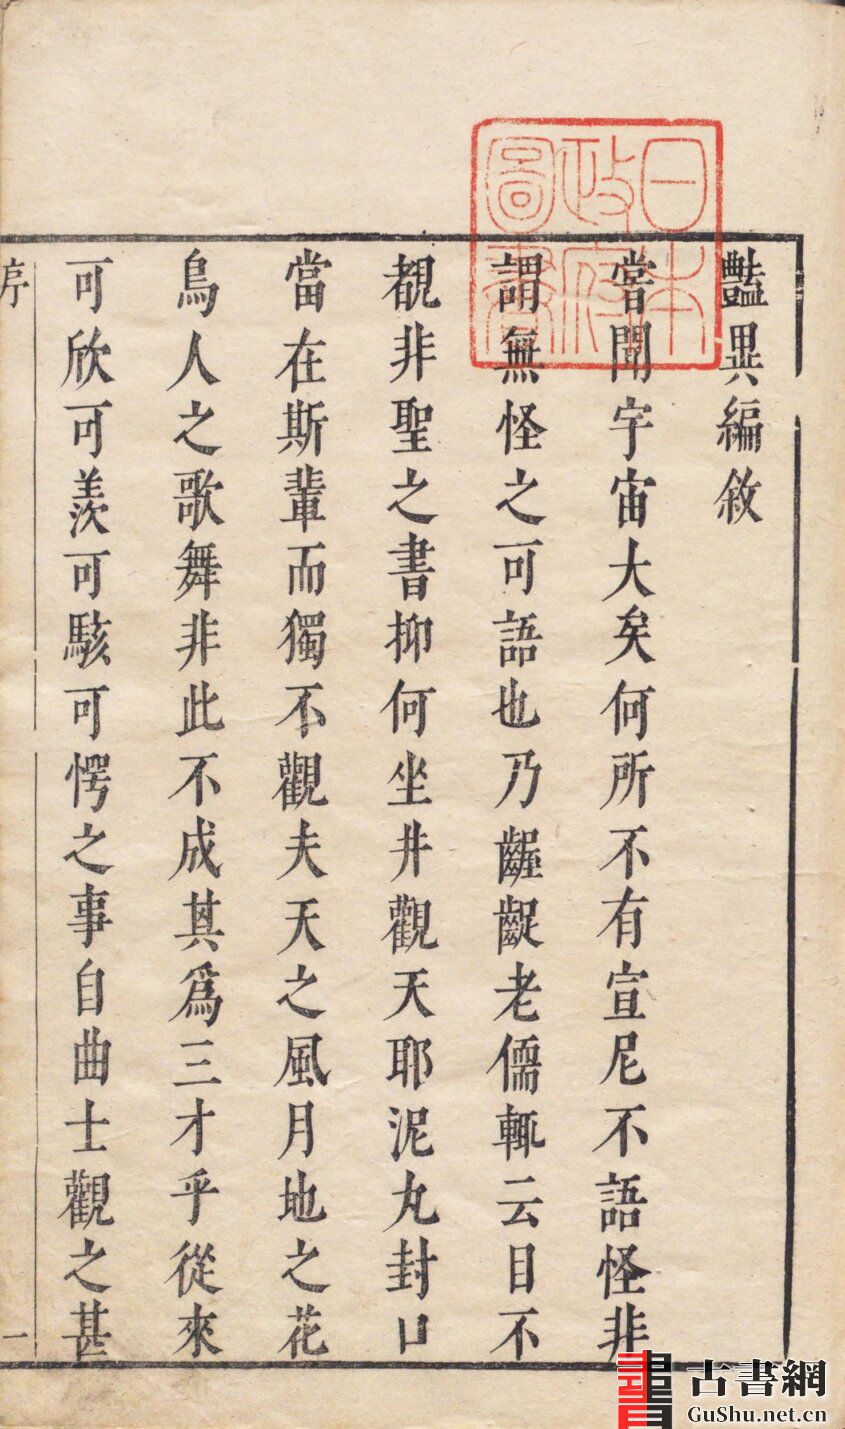 豔異編敘
嘗聞宇宙大矣何所不有宣尼不語怪非
謂無怪之可語也乃齷齪老儒輒云目不
覩非聖之書抑何坐井觀天耶泥丸封口
當在斯輩而獨不觀夫天之風月地之花
鳥人之歌舞非此不成其爲三才乎從來
可欣可羨可駭可愕之事自曲士觀之甚
序
一
日本
政府
圖書
古書網
GuShu.net.cn